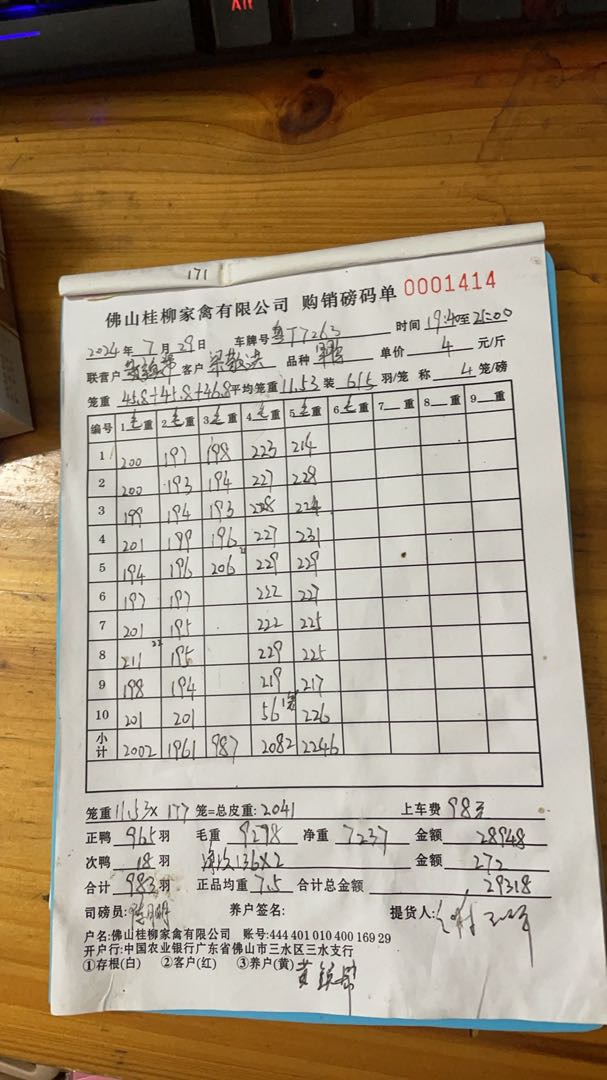 Alt
171
佛山桂柳家禽有限公司 购销磅码单 0001414
2024年 7月 29日 车牌号 粤T7263 时间 19:40至21:00
联营户 客户 梁敬洪 品种 单价 4 元/斤
笼重 45.8+45.8+46.8 平均笼重 11.53 装 6/5 羽/笼 称 4 笼/磅
编号 1毛重 2毛重 3毛重 4毛重 5毛重 6毛重 7__重 8__重 9__重
1 200 197 198 223 214
2 200 193 194 227 228
3 199 194 193 228 224
4 201 199 196 227 231
5 194 196 206 229 229
6 197 197 222 227
7 201 195 222 225
8 211 195 229 225
9 198 194 219 217
10 201 201 56 226
小计 2002 1961 987 2082 2246
笼重 11.53× 177 笼=总皮重: 2041 上车费 983
正鸭 965 羽 毛重 9298 净重 7237 金额 28948
次鸭 18 羽 136×2 金额 272
合计 983 羽 正品均重 7.5 合计总金额 29318
司磅员: 养户签名: 提货人:
户名:佛山桂柳家禽有限公司 账号:444 401 010 400 169 29
开户行:中国农业银行广东省佛山市三水区三水支行
①存根(白) ②客户(红) ③养户(黄)